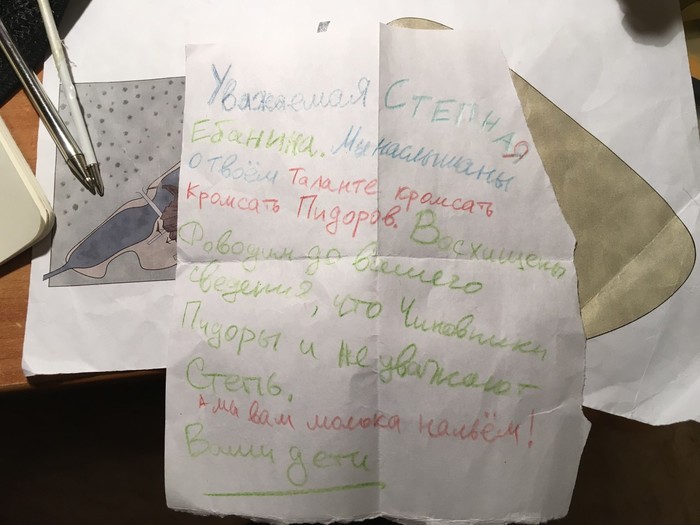 Уважаемая Степная
Ебаника. Мы наслышаны
о твоём Таланте кромсать
кромсать Пидоров. Восхищены
Доводим до вашего
сведения, что Чиновники
Пидоры и не уважают
Степь,
А мы вам молока нальём!
Ваши дети